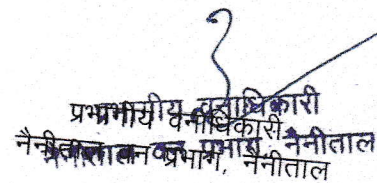 प्रभागीय वनाधिकारी
नैनीताल वन प्रभाग, नैनीताल